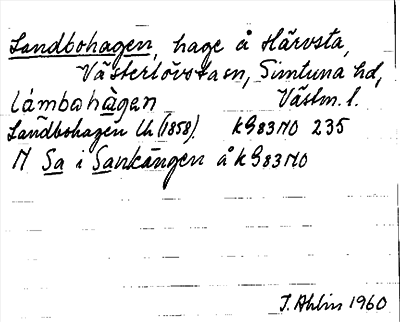 Landbohagen, hage å Härvsta,
Västerlövsta sn, Simtuna hd,
lámbohàgen Västm. l.
Landbohagen Lh (1858). kG83NO 235
N Sa i Sankängen å kG83NO
J. Ahlin 1960